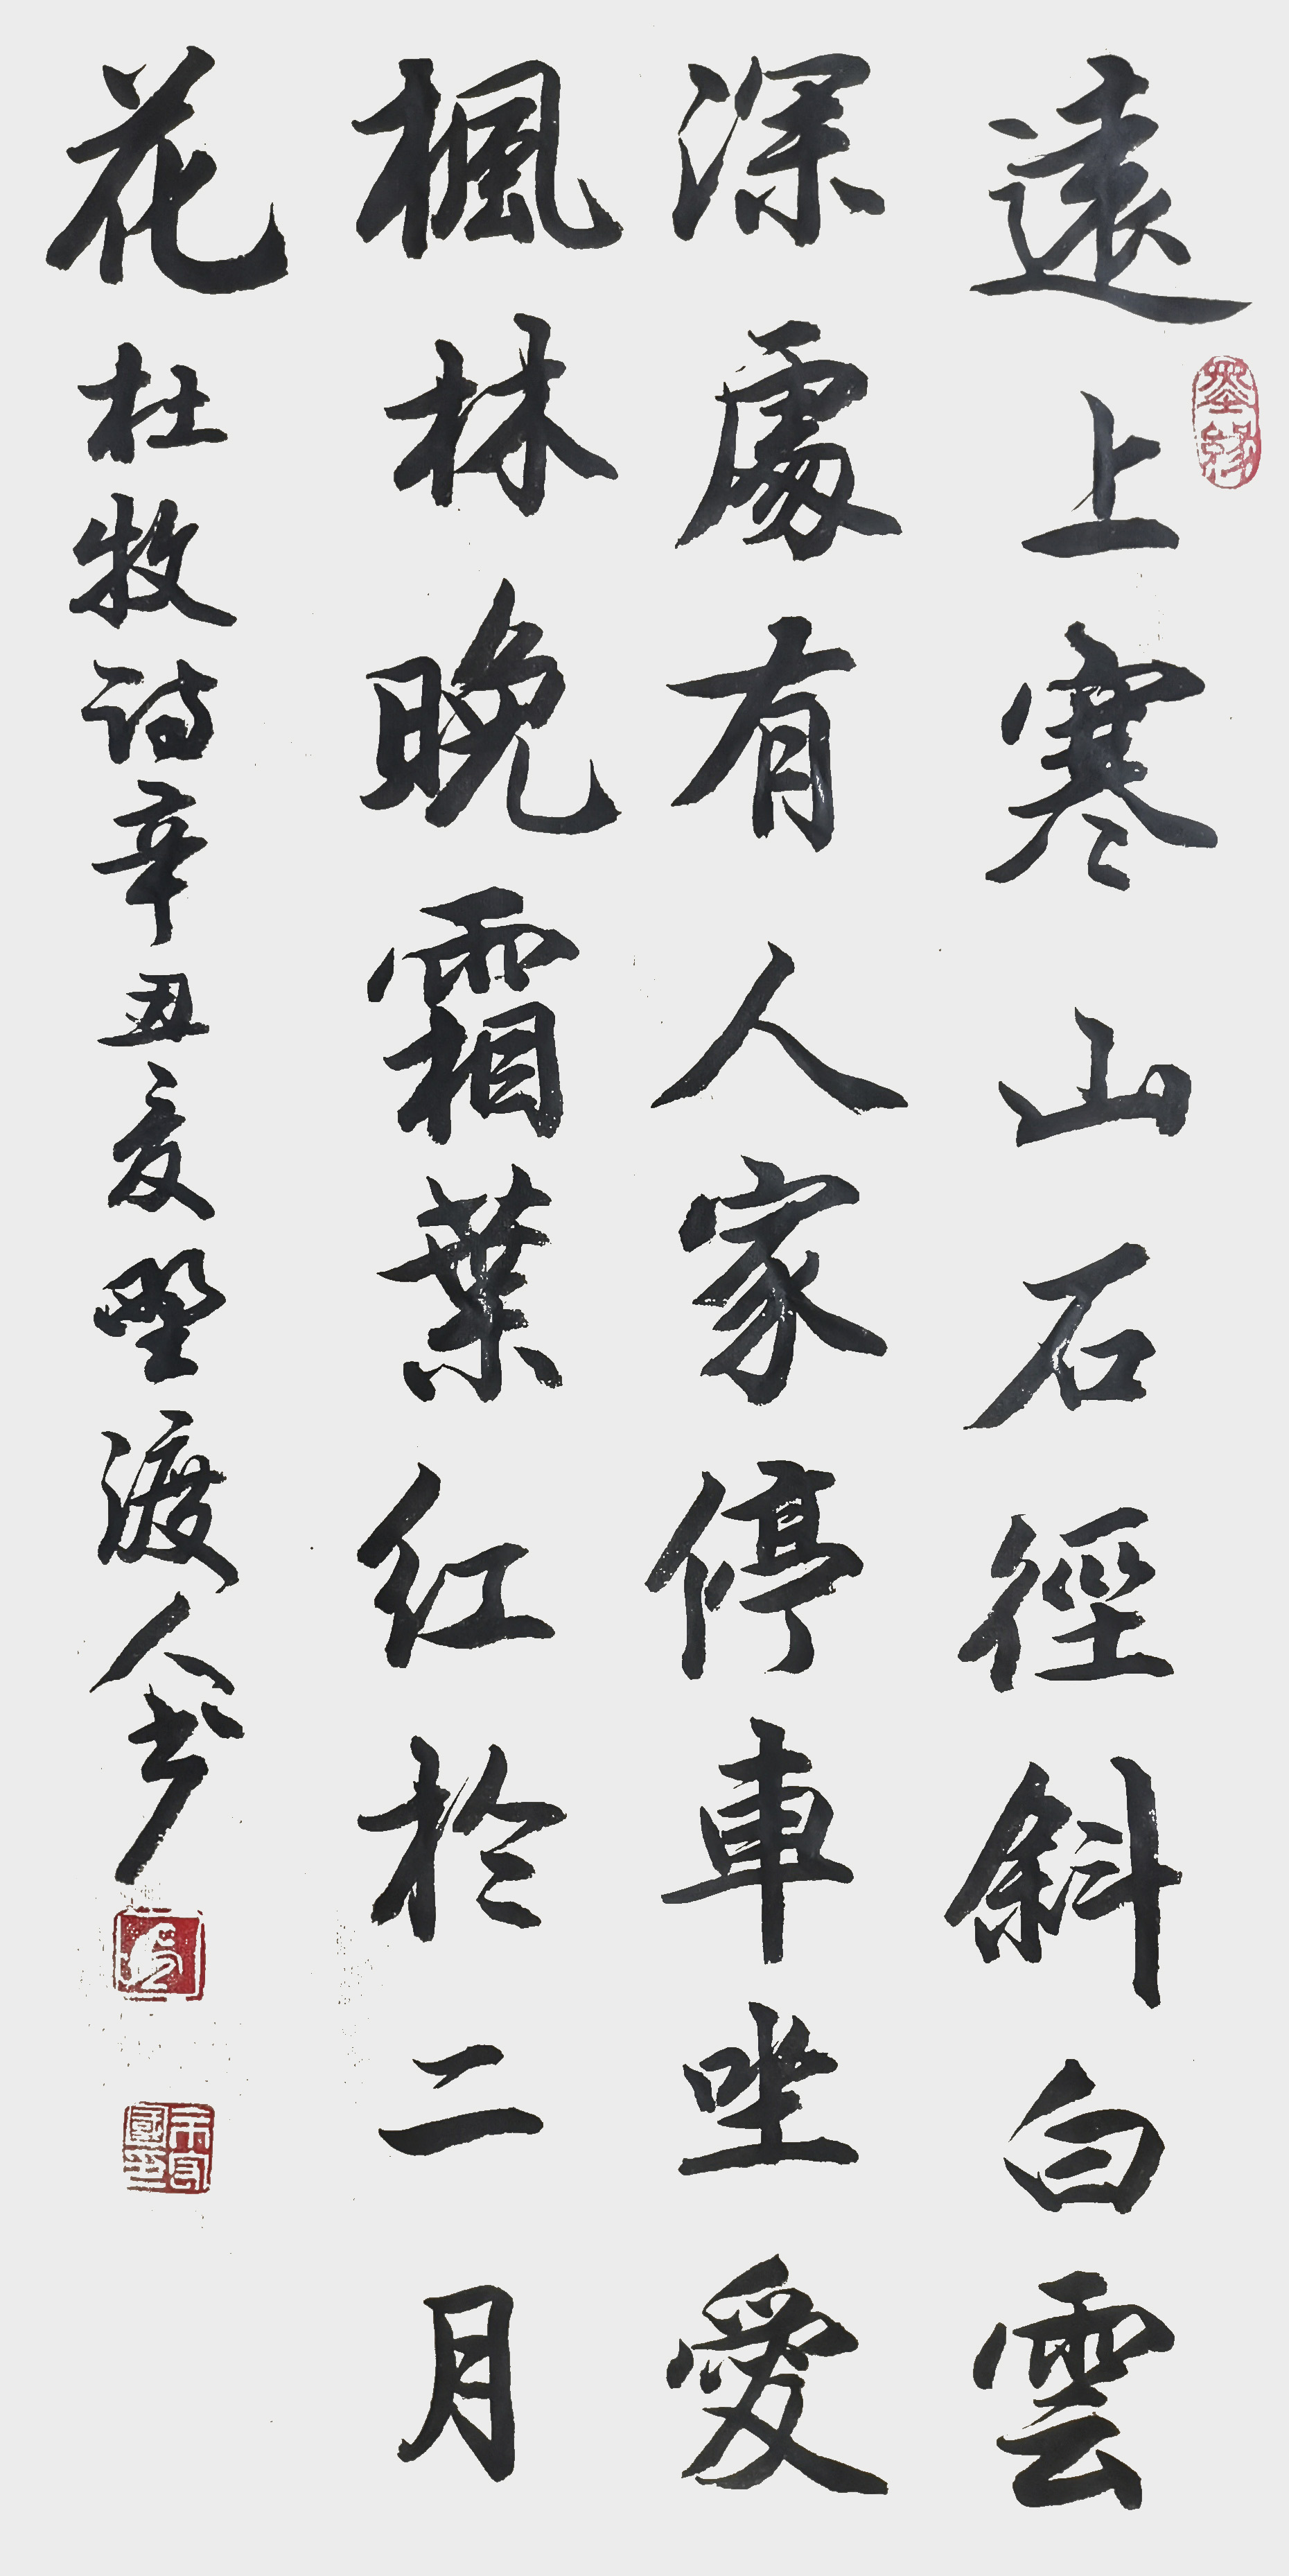 遠上寒山石徑斜白雲
深處有人家停車坐愛
楓林晚霜葉红於二月
花杜牧詩辛丑夏野渡人書
墨緣